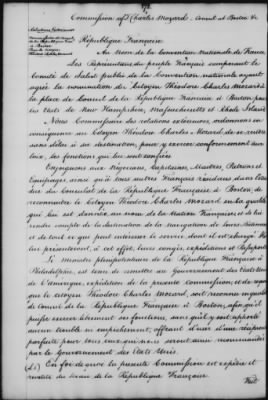 Commission of Charles Mozard, Consul at Boston &c
République Française
Au Nom de la Convention Nationale de France
Les Représentans du peuple français composant le
Comité de Salut public de la Convention nationale ayant
agréé la nomination du Citoyen Théodore Charles Mozard à
la place de Consul de la République Française à Boston, pour
les Etats de New Hampshire, Massachusetts et Rhode Island
Nous Commissaire des relations extérieures, ordonnons en
conséquence au Citoyen Théodore Charles Mozard, de se rendre
sans délai à sa destination, pour y exercer conformément aux
loix, les fonctions qui lui sont confiées.
Enjoignons aux Négocians, Capitaines, Maîtres, Patrons et
Equipages, ainsi qu'à tous autres Français résidans dans l'éten
due du Consulat de la République Française à Boston, de
reconnaître le Citoyen Théodore Charles Mozard en la qualité
qui lui est donnée, au nom de la Nation Française, et de lui
rendre compte de la destination de leurs
et de tout ce qui peut intéresser le service dont il est chargé,
lui présentant, à cet effet, leurs congés, expéditions et Passeports
Le ministre plénipotentiaire de la République Française à
Philadelphie, est tenu de remettre au Gouvernement des Etats Unis
de l'Amérique, expédition de la présente commission, et de
que le citoyen Théodore Charles Mozard, soit reconnu en qualité
de Consul de la République Française à Boston, afin qu'il
puisse exercer librement ses fonctions, sans qu'il y soit apporté
aucun trouble ni empêchement, offrant d'user d'une réciprocité
parfaite pour tous ceux qui nous seront ainsi recommandés
par le Gouvernement des Etats Unis.
(L.S.) En foi de quoi la présente Commission est expédiée et
revêtue du sceau de la République Française
Fait